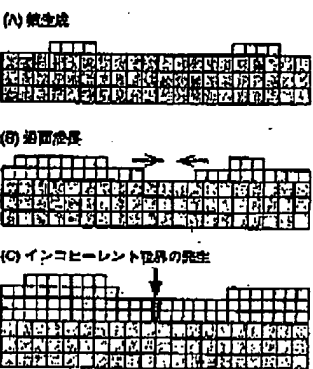 (A) 核生成
(B) 沿面成長
(C) インコヒーレント境界の発生